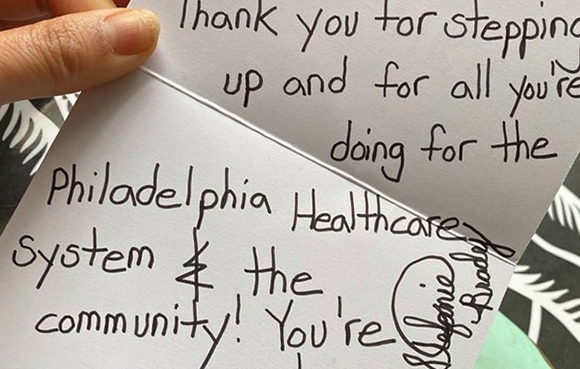 Thank you for stepping
up and for all you're
doing for the
Philadelphia Healthcare
system & the
community! You're
Stefanie
Brady